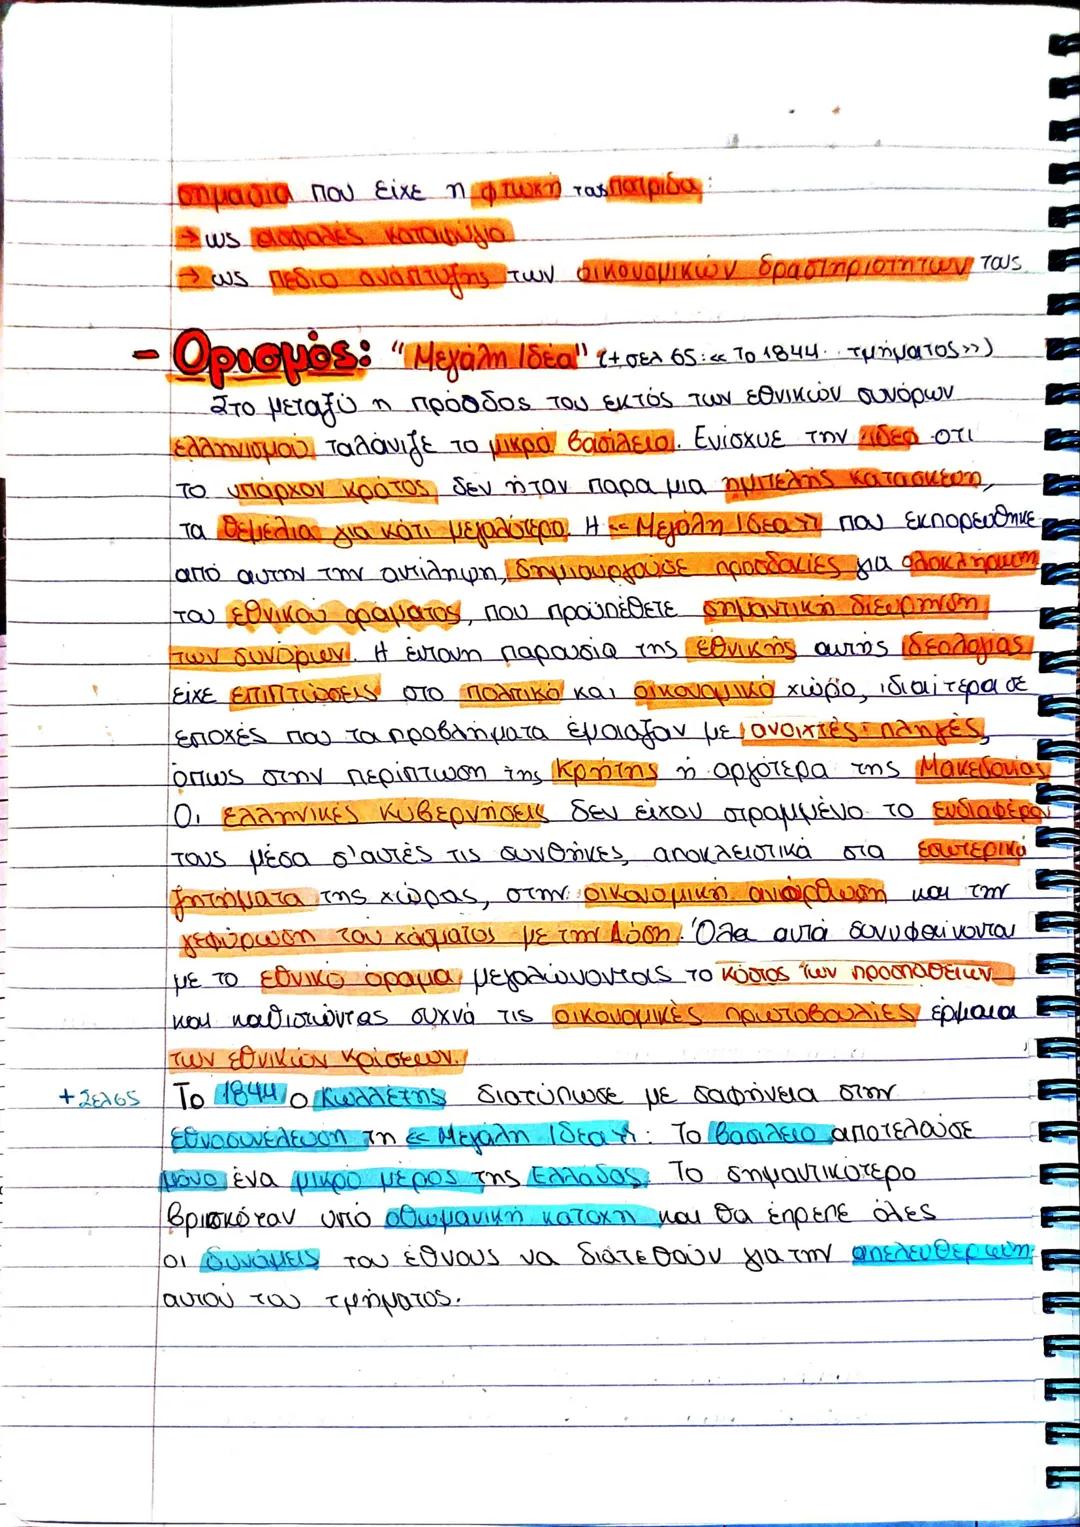 σημασία που είχε η φτωχή τους πατρίδα:
→ ως ασφαλές καταφύγιο
→ ως πεδίο ανάπτυξης των οικονομικών δραστηριοτήτων τους
- Ορισμός: "Μεγάλη Ιδέα" (+ σελ 65: «Το 1844.. τμήματος»)
Στο μεταξύ η πρόοδος του εκτός των εθνικών συνόρων
ελληνισμού ταλάνιζε το μικρό βασίλειο. Ενίσχυε την ιδέα οτι
το υπάρχον κράτος δεν ήταν παρα μια ημιτελής κατασκευή,
τα θεμέλια για κάτι μεγαλύτερο. Η «Μεγάλη Ιδέα» που εκπορεύθηκε
από αυτην την αντίληψη, δημιουργούσε προσδοκίες για ολοκλήρωση
του εθνικού οράματος, που προϋπέθετε σημαντική διεύρηνση
των συνόρων. Η έντονη παρουσία της εθνικής αυτής ιδεολογίας
είχε επιπτώσεις στο πολιτικό και οικονομικό χώρο, ιδιαίτερα σε
εποχές που τα προβλήματα έμοιαζαν με ανοιχτές πληγές,
όπως στην περίπτωση της Κρήτης ή αργότερα της Μακεδονίας
Οι ελληνικές κυβερνήσεις δεν είχαν στραμμένο το ενδιαφέρον
τους μέσα σ'αυτές τις συνθήκες, αποκλειστικά στα εσωτερικά
ζητήματα της χώρας, στην οικονομική ανόρθωση και την
γεφύρωση του χάσματος με την Δύση. Όλα αυτά συνυφαίνονται
με το εθνικό όραμα μεγαλώνοντας το κόστος των προσπαθειών
και καθιστώντας συχνά τις οικονομικές πρωτοβουλίες έρμαια
των εθνικών κρίσεων.
+ Σελ65 Το 1844 ο Κωλλέτης διατύπωσε με σαφήνεια στην
εθνοσυνέλευση τη «Μεγάλη Ιδέα»: Το βασίλειο αποτελούσε
μόνο ένα μικρό μέρος της Ελλάδας. Το σημαντικότερο
βρισκόταν υπό οθωμανική κατοχή και θα έπρεπε όλες
οι δυνάμεις του έθνους να διατεθούν για την απελευθέρωση
αυτού του τμήματος.